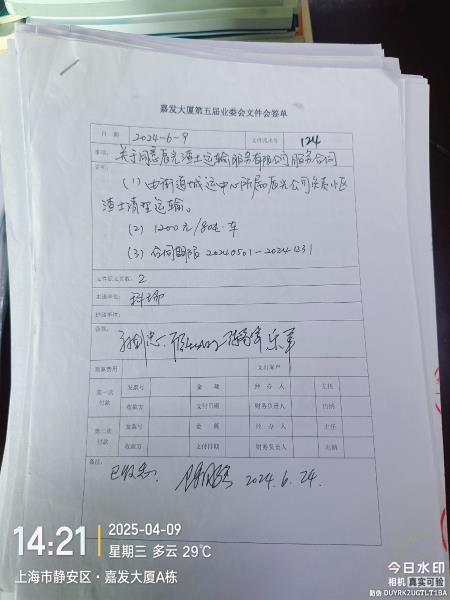 嘉发大厦第五届业委会文件会签单
日 期 2024-6-9 文件流水号 124
事项: 关于同意辰光渣土运输服务有限公司服务合同
说明:
(1) 由街道城运中心所属辰光公司负责小区
渣土清理运输。
(2) 1200元/80t·车
(3) 合同期限 20240501-20241231
文件原文页数: 2
主送单位:
抄送单位:
会签:
预算费用 支付账户
第一次付款 发票号 金 额 经 办 人 主任
收款方 支付日期 财务负责人 出纳
第二次付款 发票号 金 额 经 办 人 主任
收款方 支付日期 财务负责人 出纳
备注:
2024.6.24.
14:21 2025-04-09
星期三 多云 29℃
上海市静安区·嘉发大厦A栋
今日水印
相机 真实可验
防伪 DUYRK2UGTLT1BA